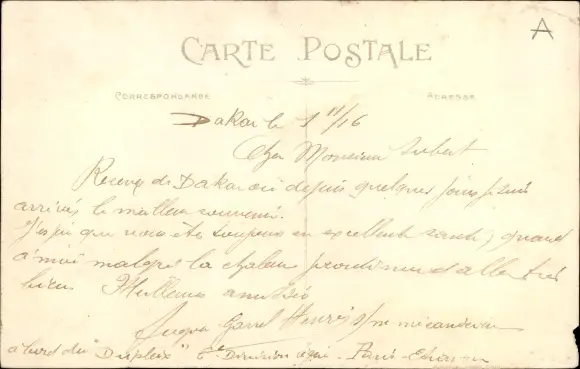 A
CARTE POSTALE
CORRESPONDANCE
ADRESSE
Dakar le 1 11/16
Cher Monsieur
Recevez de Dakar où depuis quelques jours je suis
arrivé le meilleur souvenir.
J'espère que vous êtes toujours en excellente santé, quand
à moi malgré la chaleur je continue d'aller très
bien Meilleures amitiés
Henri s/m mécanicien
à bord du "Dupleix" 6e Division Paris